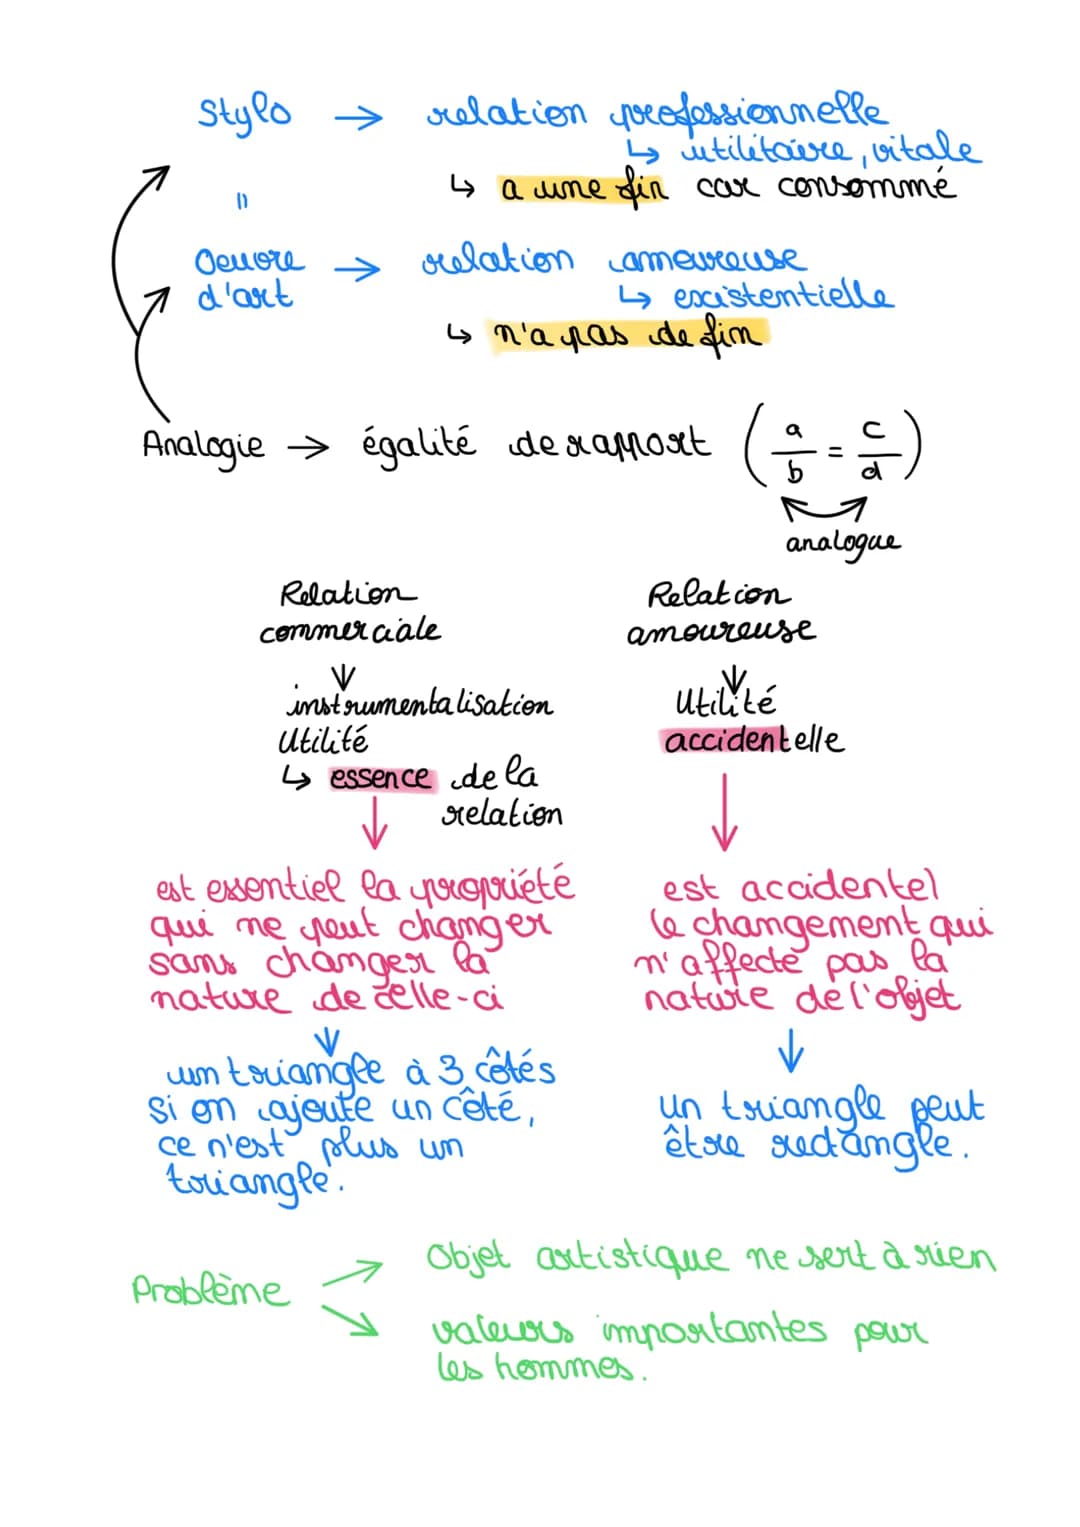 Stylo → relation professionnelle
↳ utilitaire, vitale
↳ a une fin car consommé
"
Oeuvre → relation amoureuse
d'art ↳ existentielle
↳ n'a pas de fin
Analogie → égalité de rapport (a/b = c/d)
analogue
Relation Relation
commerciale amoureuse
instrumentalisation Utilité
Utilité accidentelle
↳ essence de la
relation
est essentiel la propriété est accidentel
qui ne peut changer le changement qui
sans changer la n'affecte pas la
nature de celle-ci nature de l'objet
un triangle à 3 côtés
si on ajoute un côté, un triangle peut
ce n'est plus un être rectangle.
triangle.
Objet artistique ne sert à rien
Problème
valeurs importantes pour
les hommes.